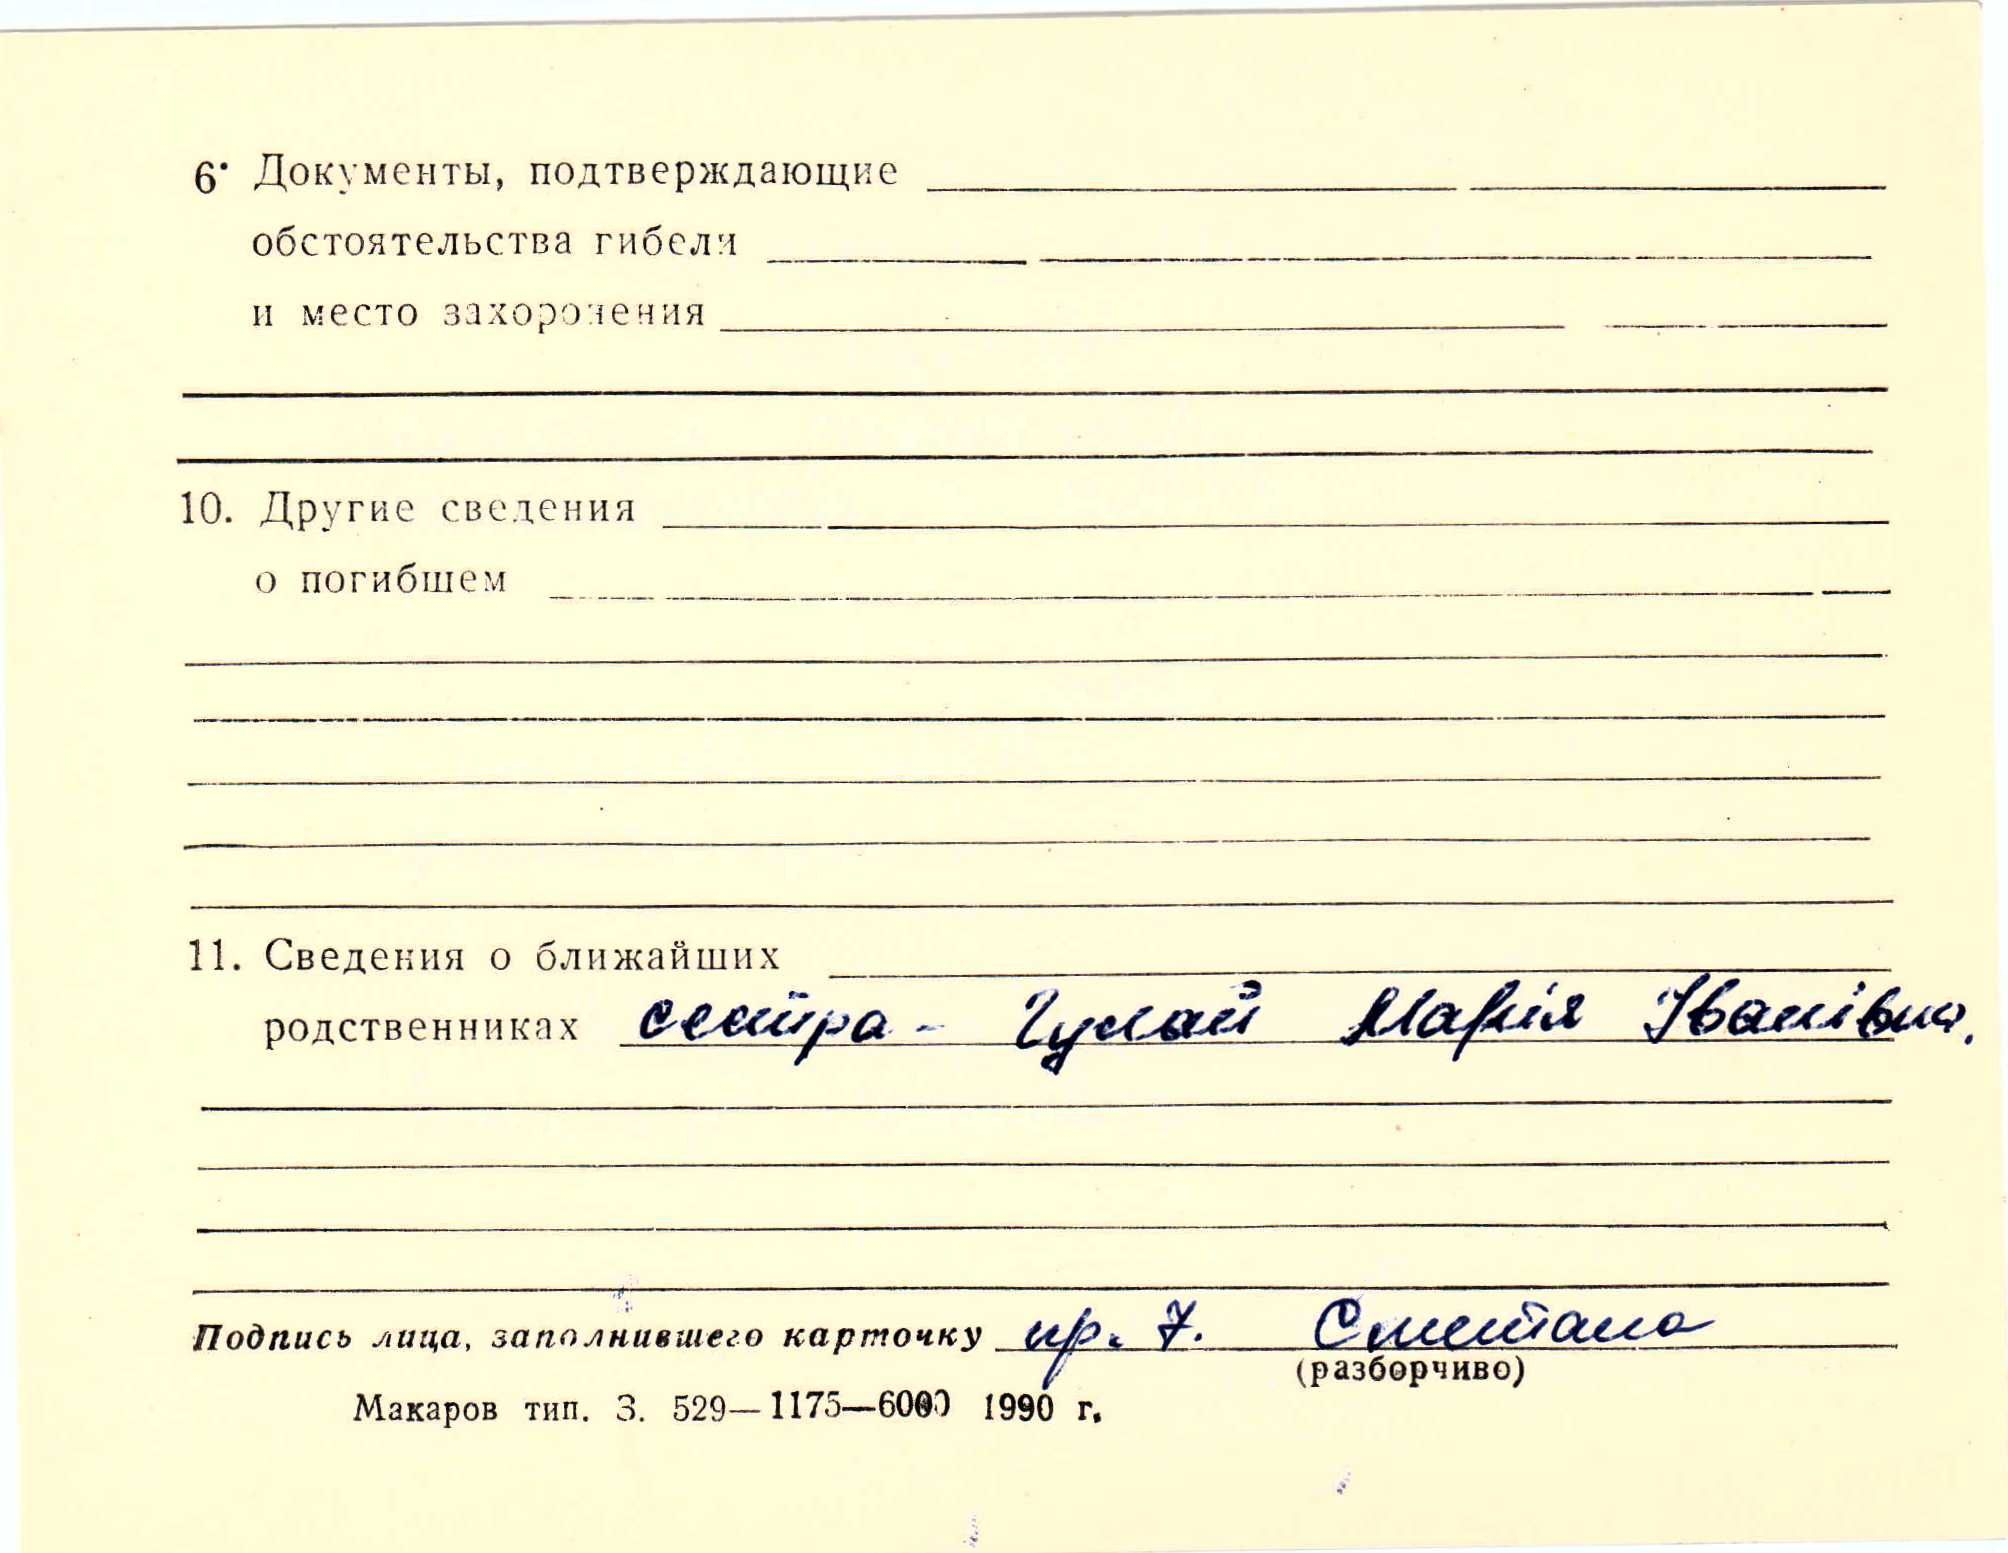 6. Документы, подтверждающие
обстоятельства гибели
и место захоронения
10. Другие сведения
о погибшем
11. Сведения о ближайших
родственниках сестра - Гулай Марія Іванівна.
Подпись лица, заполнившего карточку пр. 7. Сметана
(разборчиво)
Макаров тип. З. 529—1175—6000 1990 г.